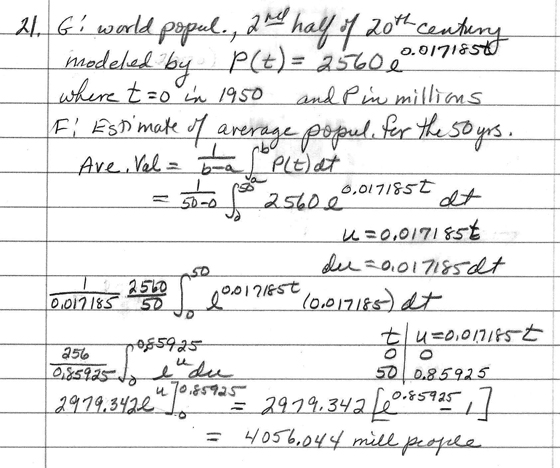 21. G: world popul., 2nd half of 20th century
modeled by P(t) = 2560 e^0.017185t
where t=0 in 1950 and P in millions
F: Estimate of average popul. for the 50 yrs.
Ave. Val = 1/(b-a) ∫_a^b P(t) dt
= 1/(50-0) ∫_0^50 2560 e^0.017185t dt
u = 0.017185t
du = 0.017185 dt
1/0.017185 2560/50 ∫_0^50 e^0.017185t (0.017185) dt
t | u = 0.017185t
0 | 0
50 | 0.85925
256/0.85925 ∫_0^0.85925 e^u du
2979.342 e^u ]_0^0.85925 = 2979.342 [e^0.85925 - 1]
= 4056.044 mill people